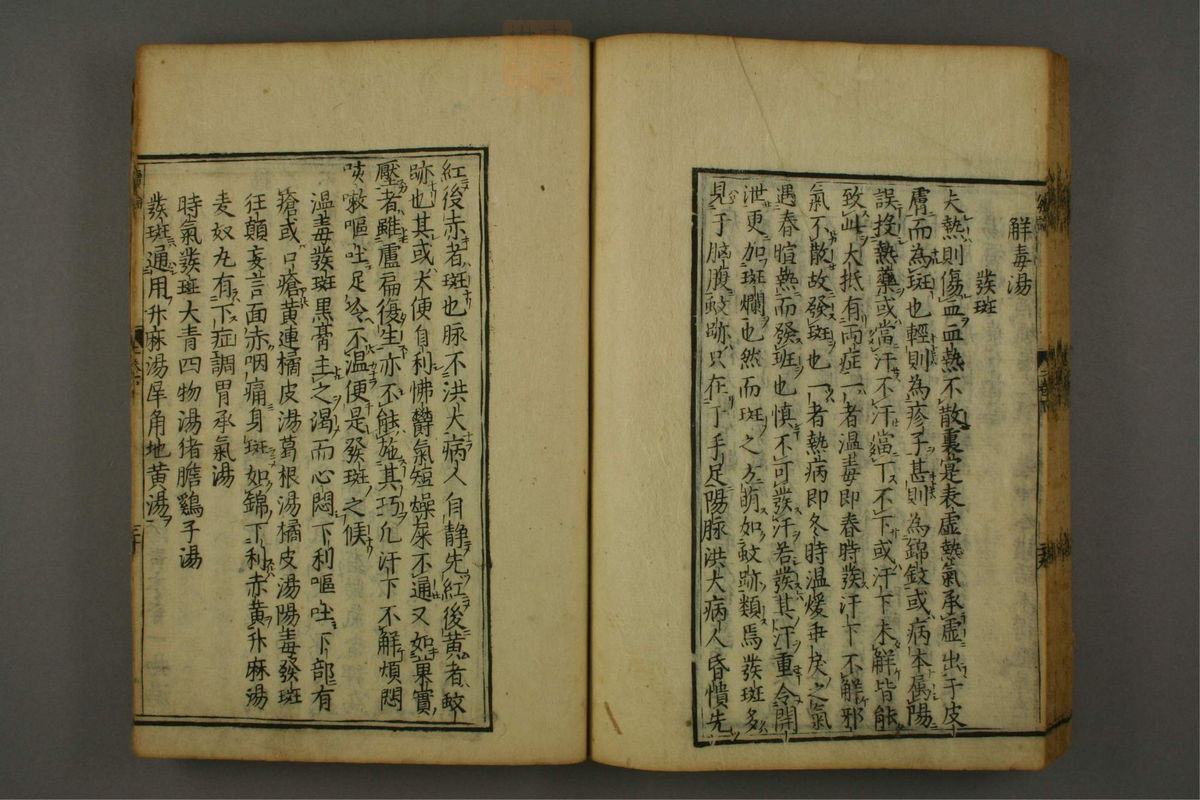 解毒湯
發斑
大熱則傷血血熱不散裏寔表虛熱氣承虛出于皮
膚而為斑也輕則為疹子甚則為錦紋或病本属陽
誤投熱藥或當汗不汗當下不下或汗下未解皆能
致此大抵有両症一者温毒即春時發汗下不解邪
氣不散故發斑也一者熱病即冬時温煖乖戾之氣
遇春暄熱而發班也慎不可發汗若發其汗重令開
泄更加斑爛也然而斑之方萌如蚊跡類焉發斑多
見于胸腹蚊跡只在于手足陽脉洪大病人昏憒先
紅後赤者斑也脉不洪大病人自静先紅後黄者蚊
跡也其或大便自利怫欝氣短燥屎不通又如果實
壓者雖盧扁復生亦不能施其巧凡汗下不解煩悶
咳嗽嘔吐足冷不温便是發斑之候
温毒發斑黒膏主之渴而心悶下利嘔吐下部有
瘡或口瘡黄連橘皮湯葛根湯橘皮湯陽毒發斑
狂顛妄言面赤咽痛身斑如錦下利赤黄升麻湯
麦奴丸有下症調胃承氣湯
時氣發斑大青四物湯猪膽鷄子湯
發斑通用升麻湯犀角地黄湯